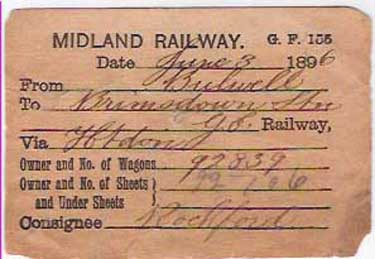 MIDLAND RAILWAY. G. F. 155
Date June 3 1896
From Bulwell
To Brimsdown Stn
G.E. Railway,
Via
Owner and No. of Wagons 92839
Owner and No. of Sheets
and Under Sheets
Consignee Rochford